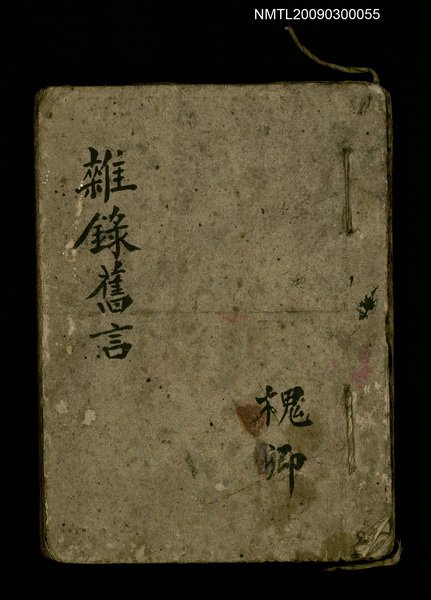 NMTL20090300055
雜錄舊言
槐卿